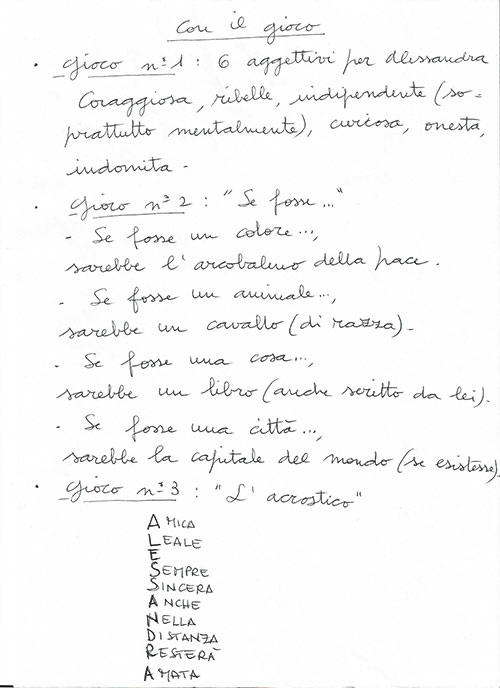 Con il gioco
· Gioco n° 1 : 6 aggettivi per Alessandra
Coraggiosa, ribelle, indipendente (so=
prattutto mentalmente), curiosa, onesta,
indomita -
· Gioco n° 2 : "Se fosse..."
- Se fosse un colore...,
sarebbe l'arcobaleno della pace.
- Se fosse un animale...,
sarebbe un cavallo (di razza).
- Se fosse una cosa...,
sarebbe un libro (anche scritto da lei).
- Se fosse una città...,
sarebbe la capitale del mondo (se esistesse).
· Gioco n° 3 : "L'acrostico"
AMICA
LEALE
E
SEMPRE
SINCERA
ANCHE
NELLA
DISTANZA
RESTERÀ
AMATA